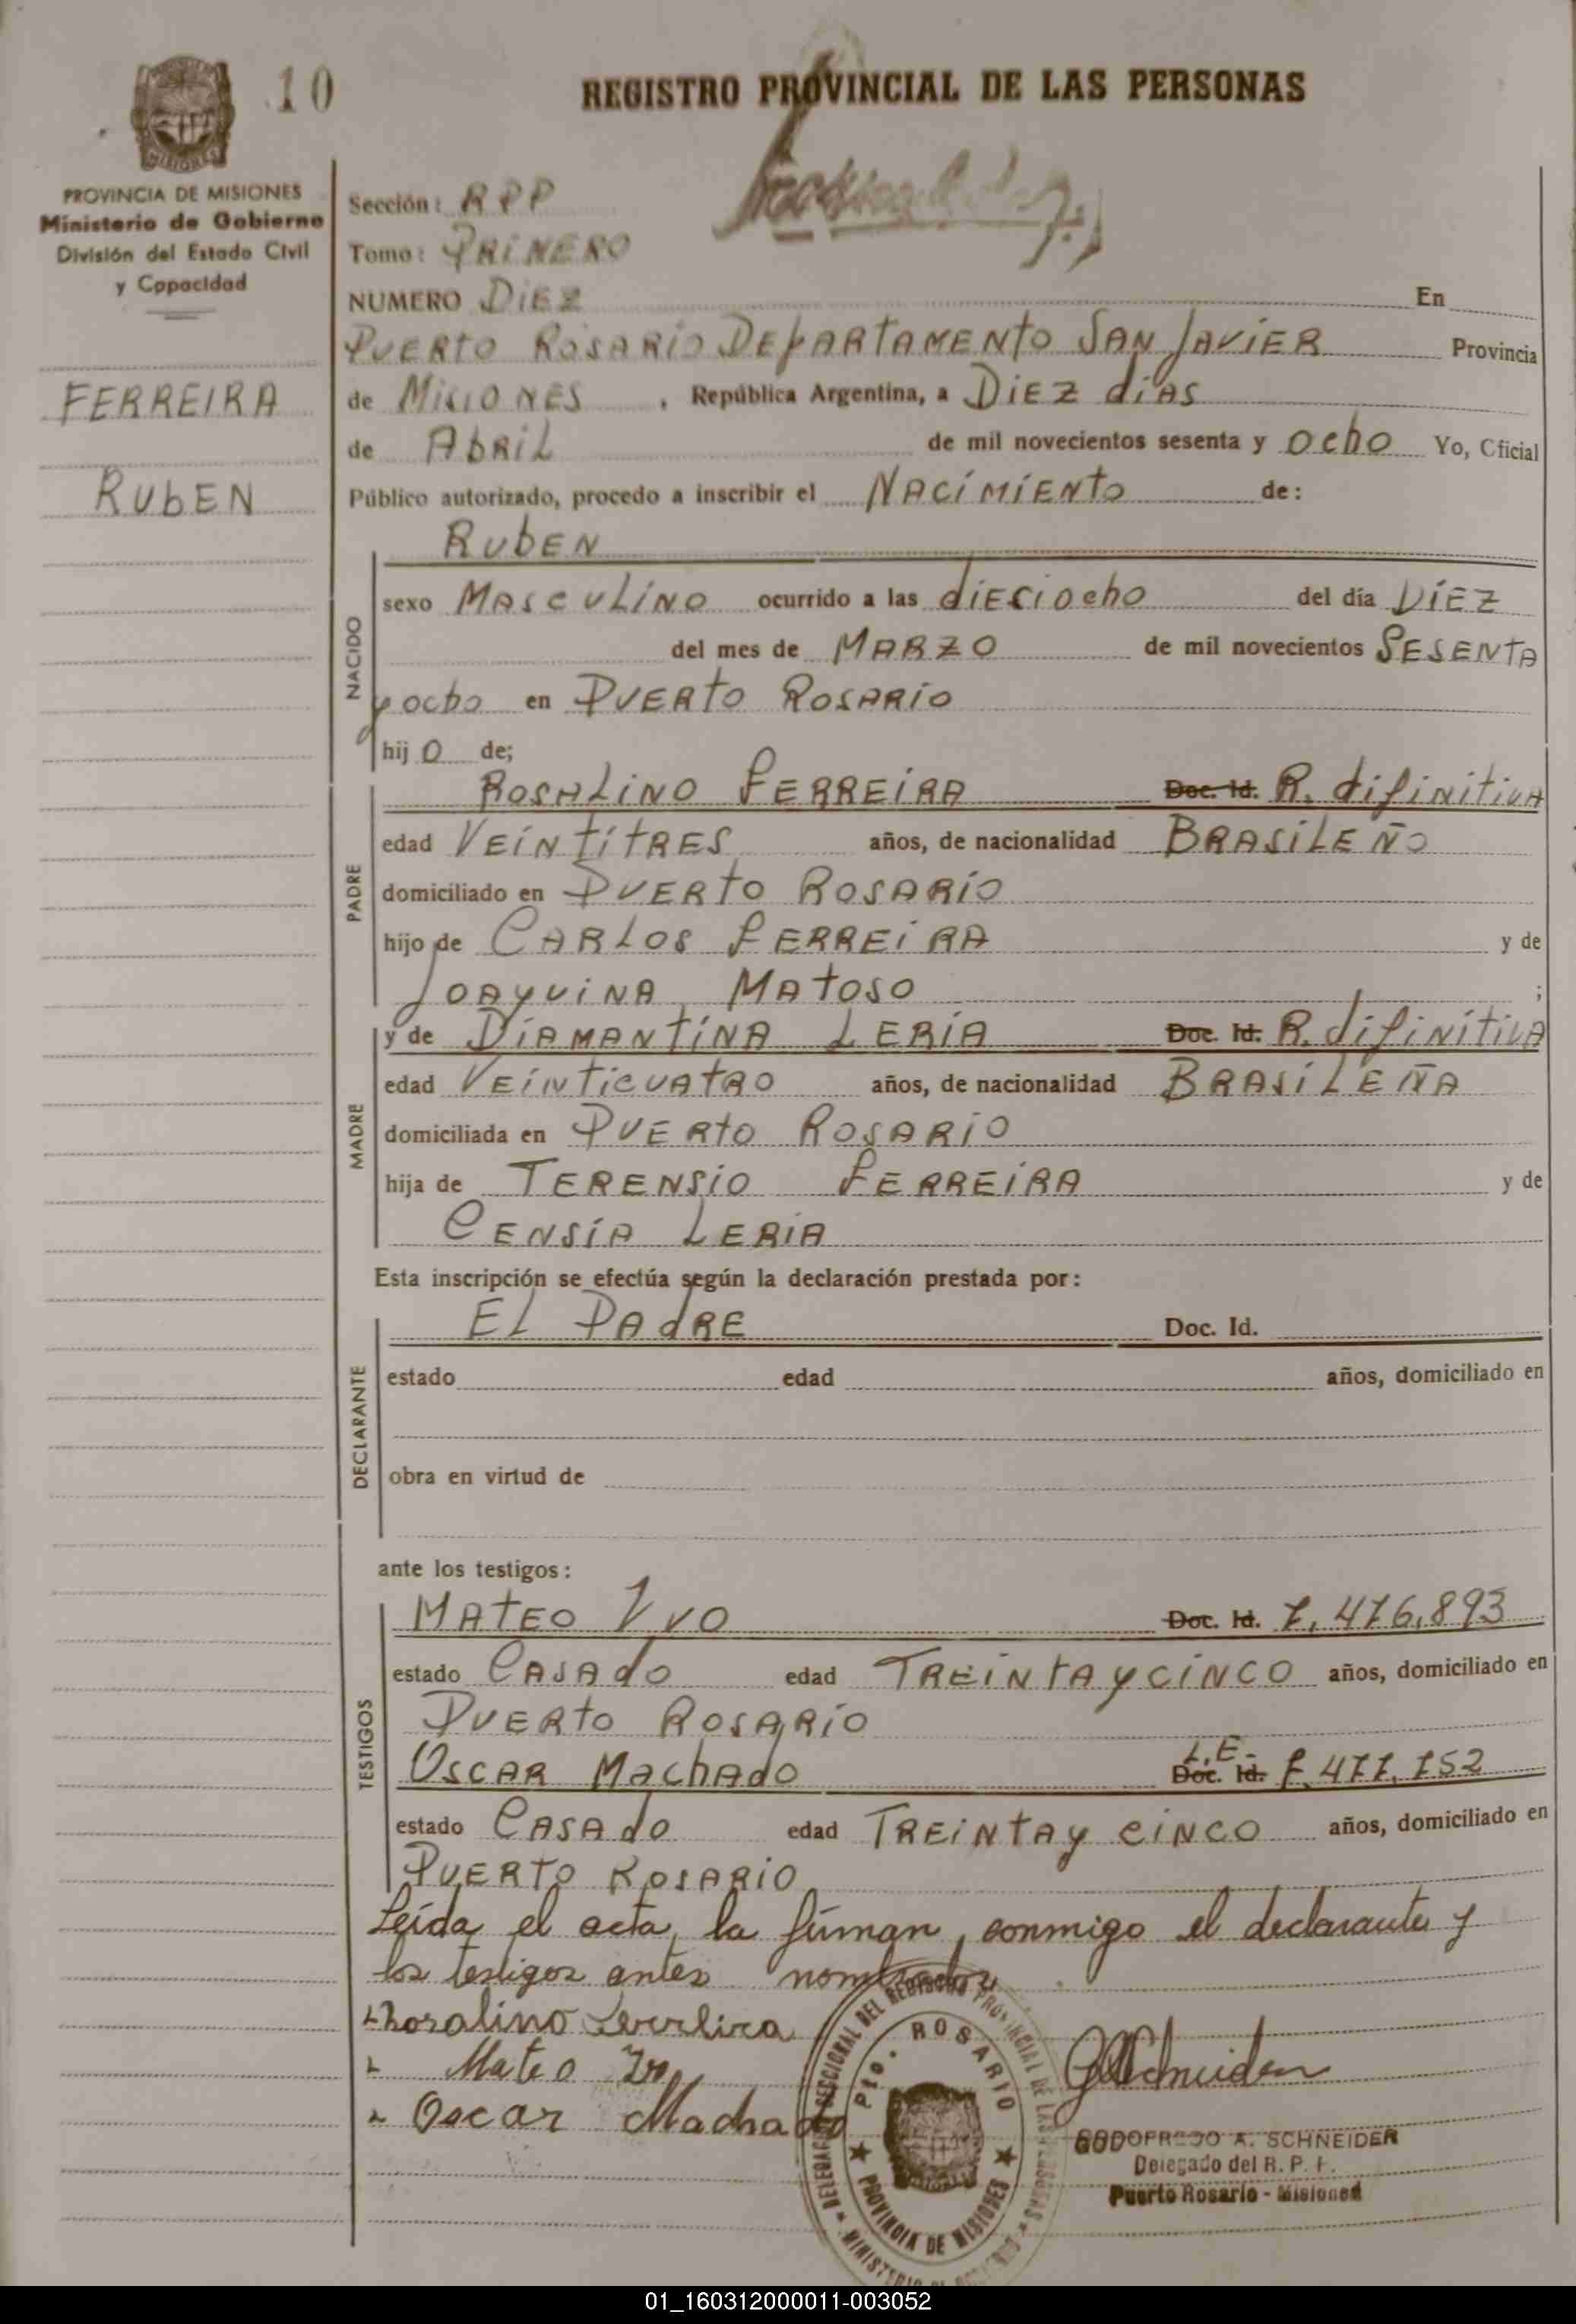 10
REGISTRO PROVINCIAL DE LAS PERSONAS
MISIONES
PROVINCIA DE MISIONES
Ministerio de Gobierno
División del Estado Civil
y Capacidad
FERREIRA
RUbEN
Sección: RPP
Tomo: PRiMERO
NUMERO DiEZ En
PUERTO ROSARIO DEPARTAMENTO SAN JAVIER Provincia
de MISIONES, República Argentina, a DiEZ díAS
de AbRiL de mil novecientos sesenta y ocho Yo, Oficial
Público autorizado, procedo a inscribir el NACíMíENto de:
RUbEN
NACIDO
sexo MASCULíNO ocurrido a las díECiOcho del día DíEZ
del mes de MARZO de mil novecientos SESENTA
y ocho en PUERtO ROSARíO
hijo de;
PADRE
ROSALiNO FERREiRA Doc. Id. R. difinitiva
edad VEíNTíTRES años, de nacionalidad BRASiLEÑO
domiciliado en PUERtO ROSARíO
hijo de CARLOS FERREiRA y de
JOAQUiNA MAtOSO ;
MADRE
y de DíAMANtíNA LERíA Doc. Id. R. difinítiva
edad VEíNTiCUAtRO años, de nacionalidad BRASíLEÑA
domiciliada en PUERtO ROSARiO
hija de TERENSíO FERREíRA y de
CENSíA LERíA
Esta inscripción se efectúa según la declaración prestada por:
DECLARANTE
EL PAdRE Doc. Id.
estado edad años, domiciliado en
obra en virtud de
ante los testigos:
TESTIGOS
MATEO Doc. Id. 7,476,893
estado CASAdo edad TREiNtA y CíNCO años, domiciliado en
PUERtO ROSARíO
L.E.-
OSCAR MAchAdo Doc. Id. 7,477,752
estado CASAdo edad TREiNTA y CiNCO años, domiciliado en
PUERTO ROSARiO
Leída el acta, la firman, conmigo el declarante y
los testigos antes nombrados
Rosalino Ferreira
Mateo
Oscar Machado
DELEGACIÓN SECCIONAL DEL REGISTRO PROVINCIAL DE LAS PERSONAS
Pto. ROSARIO
PROVINCIA DE MISIONES
GASchneider
GODOFREDO A. SCHNEIDER
Delegado del R. P. P.
Puerto Rosario - Misiones
01_160312000011-003052